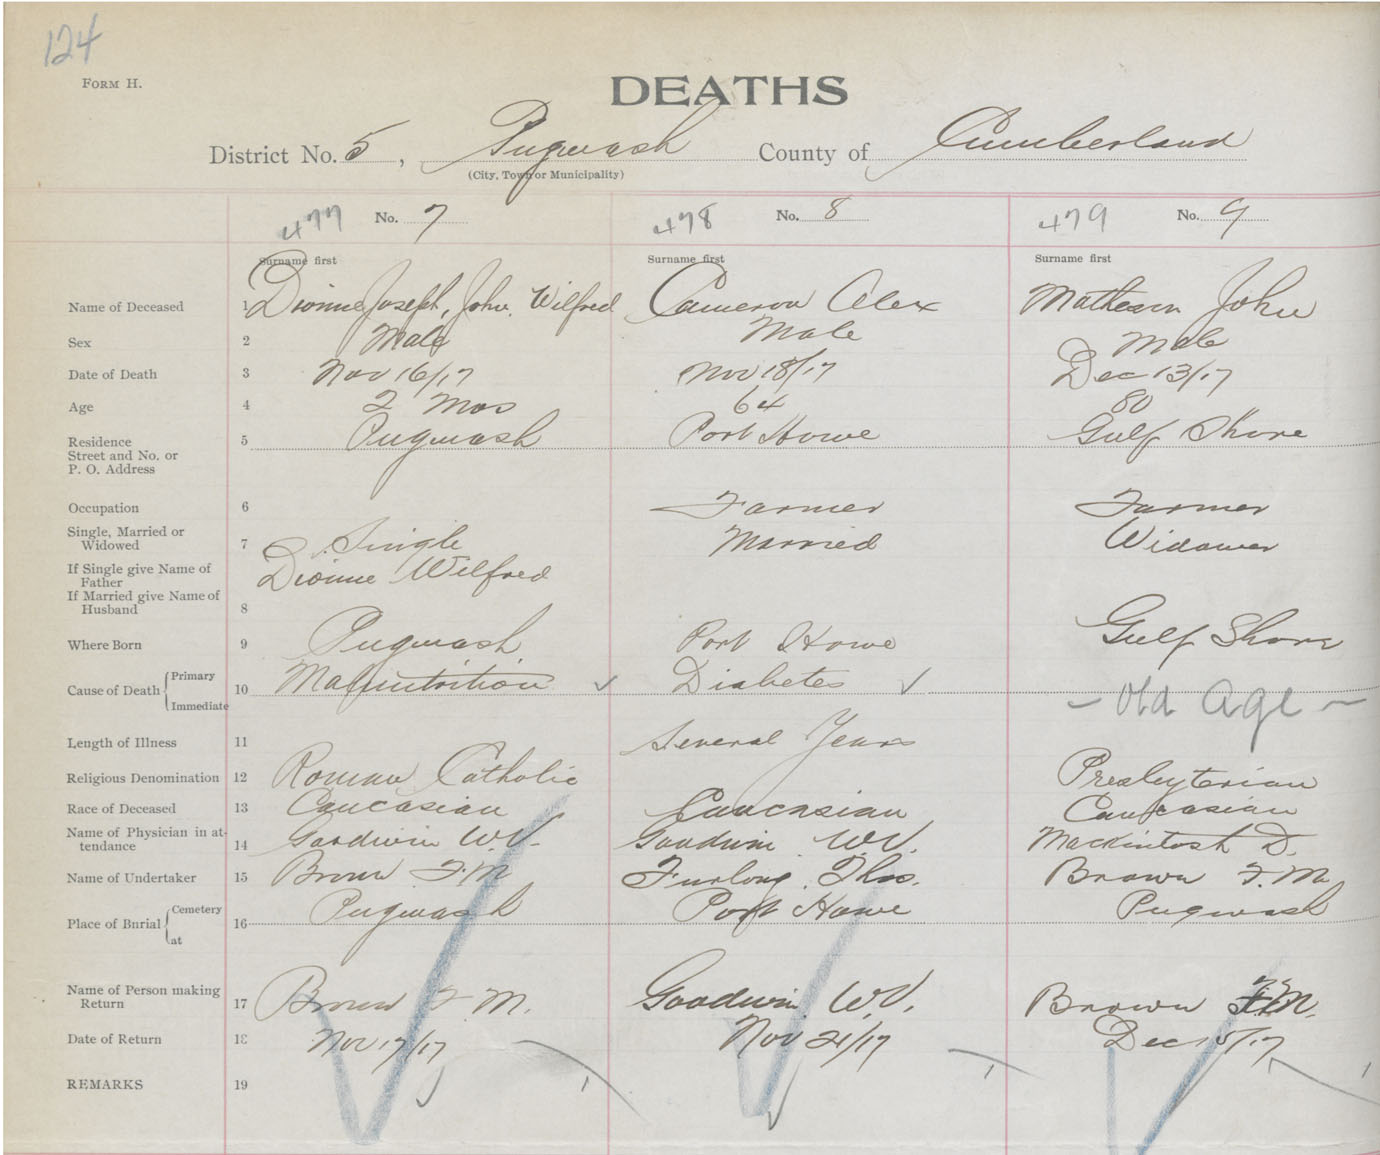 124
FORM H.
DEATHS
District No. 5, Pugwash County of Cumberland
(City, Town or Municipality)
477 No. 7 478 No. 8 479 No. 9
Surname first Surname first Surname first
Name of Deceased 1 Dionne Joseph, John, Wilfred Cameron Alex Matheson John
Sex 2 Male Male Male
Date of Death 3 Nov 16/17 Nov 18/17 Dec 13/17
Age 4 2 Mos 64 80
Residence 5 Pugwash Port Howe Gulf Shore
Street and No. or
P. O. Address
Occupation 6 Farmer Farmer
Single, Married or
Widowed 7 Single Married Widower
If Single give Name of
Father Dionne Wilfred
If Married give Name of
Husband 8
Where Born 9 Pugwash Port Howe Gulf Shore
Cause of Death { Primary
Immediate 10 Malnutrition ✓ Diabetes ✓ - Old Age -
Length of Illness 11 Several Years
Religious Denomination 12 Roman Catholic Presbyterian
Race of Deceased 13 Caucasian Caucasian Caucasian
Name of Physician in at-
tendance 14 Goodwin W.V. Goodwin W.V. Mackintosh D.
Name of Undertaker 15 Brown F.M Furlong Thos. Brown F.M
Place of Burial { Cemetery
at 16 Pugwash Port Howe Pugwash
Name of Person making
Return 17 Brown F.M. Goodwin W.V. Brown F.M.
Date of Return 18 Nov 17/17 Nov 21/17 Dec 15/17
REMARKS 19